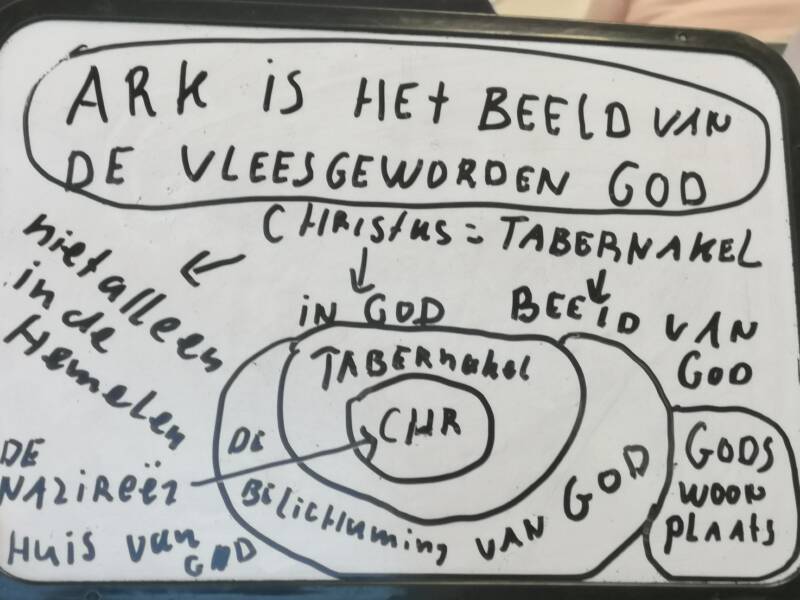 ARK is HEt BEElD VAN
DE VLEESGEWORDEN GOD
CHRistus = TABERNAKEL
niet alleen
in de
Hemelen
iN GOD
BEElD VAN
GOD
TABERnakel
CHR
DE
BEliCHUming VAN GOD
GODS
WOON
plAAtS
DE
NAZIREËR
HUiS van
GOD